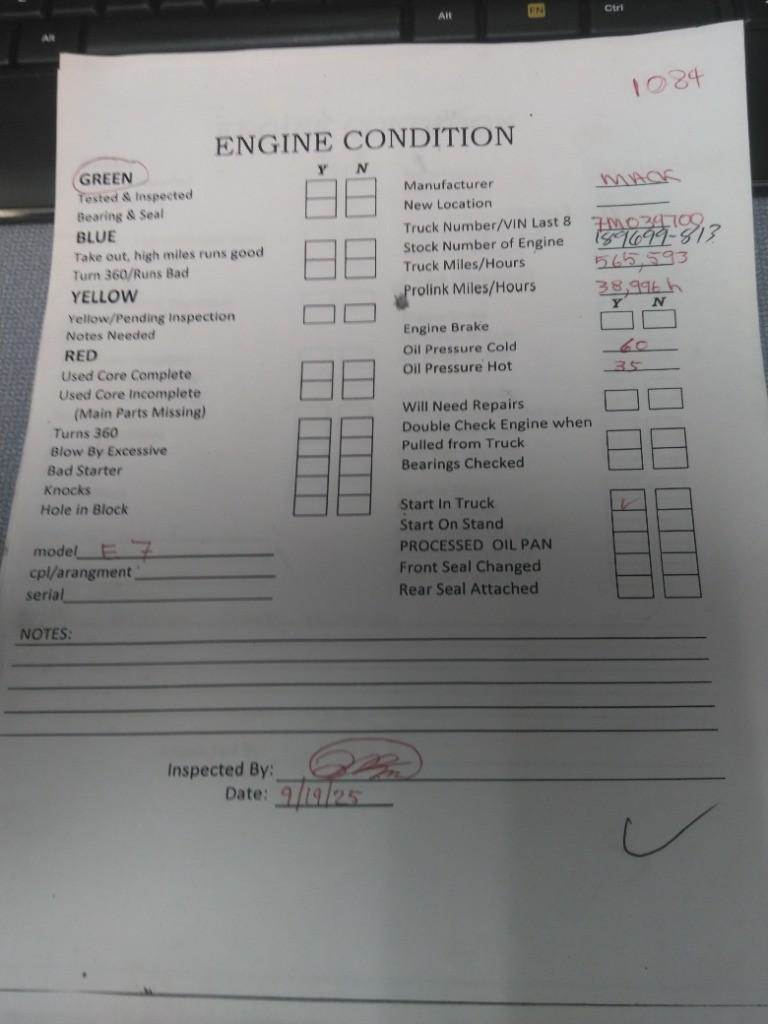 Alt
Alt
FN
Ctrl
1084
ENGINE CONDITION
Y N
GREEN
Tested & Inspected
Bearing & Seal
BLUE
Take out, high miles runs good
Turn 360/Runs Bad
YELLOW
Yellow/Pending Inspection
Notes Needed
RED
Used Core Complete
Used Core Incomplete
(Main Parts Missing)
Turns 360
Blow By Excessive
Bad Starter
Knocks
Hole in Block
model E7
cpl/arangment
serial
Manufacturer MACK
New Location
Truck Number/VIN Last 8 7M034700
Stock Number of Engine 189699-813
Truck Miles/Hours 565,593
Prolink Miles/Hours 38,996 h
Y N
Engine Brake
Oil Pressure Cold 60
Oil Pressure Hot 35
Will Need Repairs
Double Check Engine when
Pulled from Truck
Bearings Checked
Start In Truck ✓
Start On Stand
PROCESSED OIL PAN
Front Seal Changed
Rear Seal Attached
NOTES:
Inspected By:
Date: 9/19/25